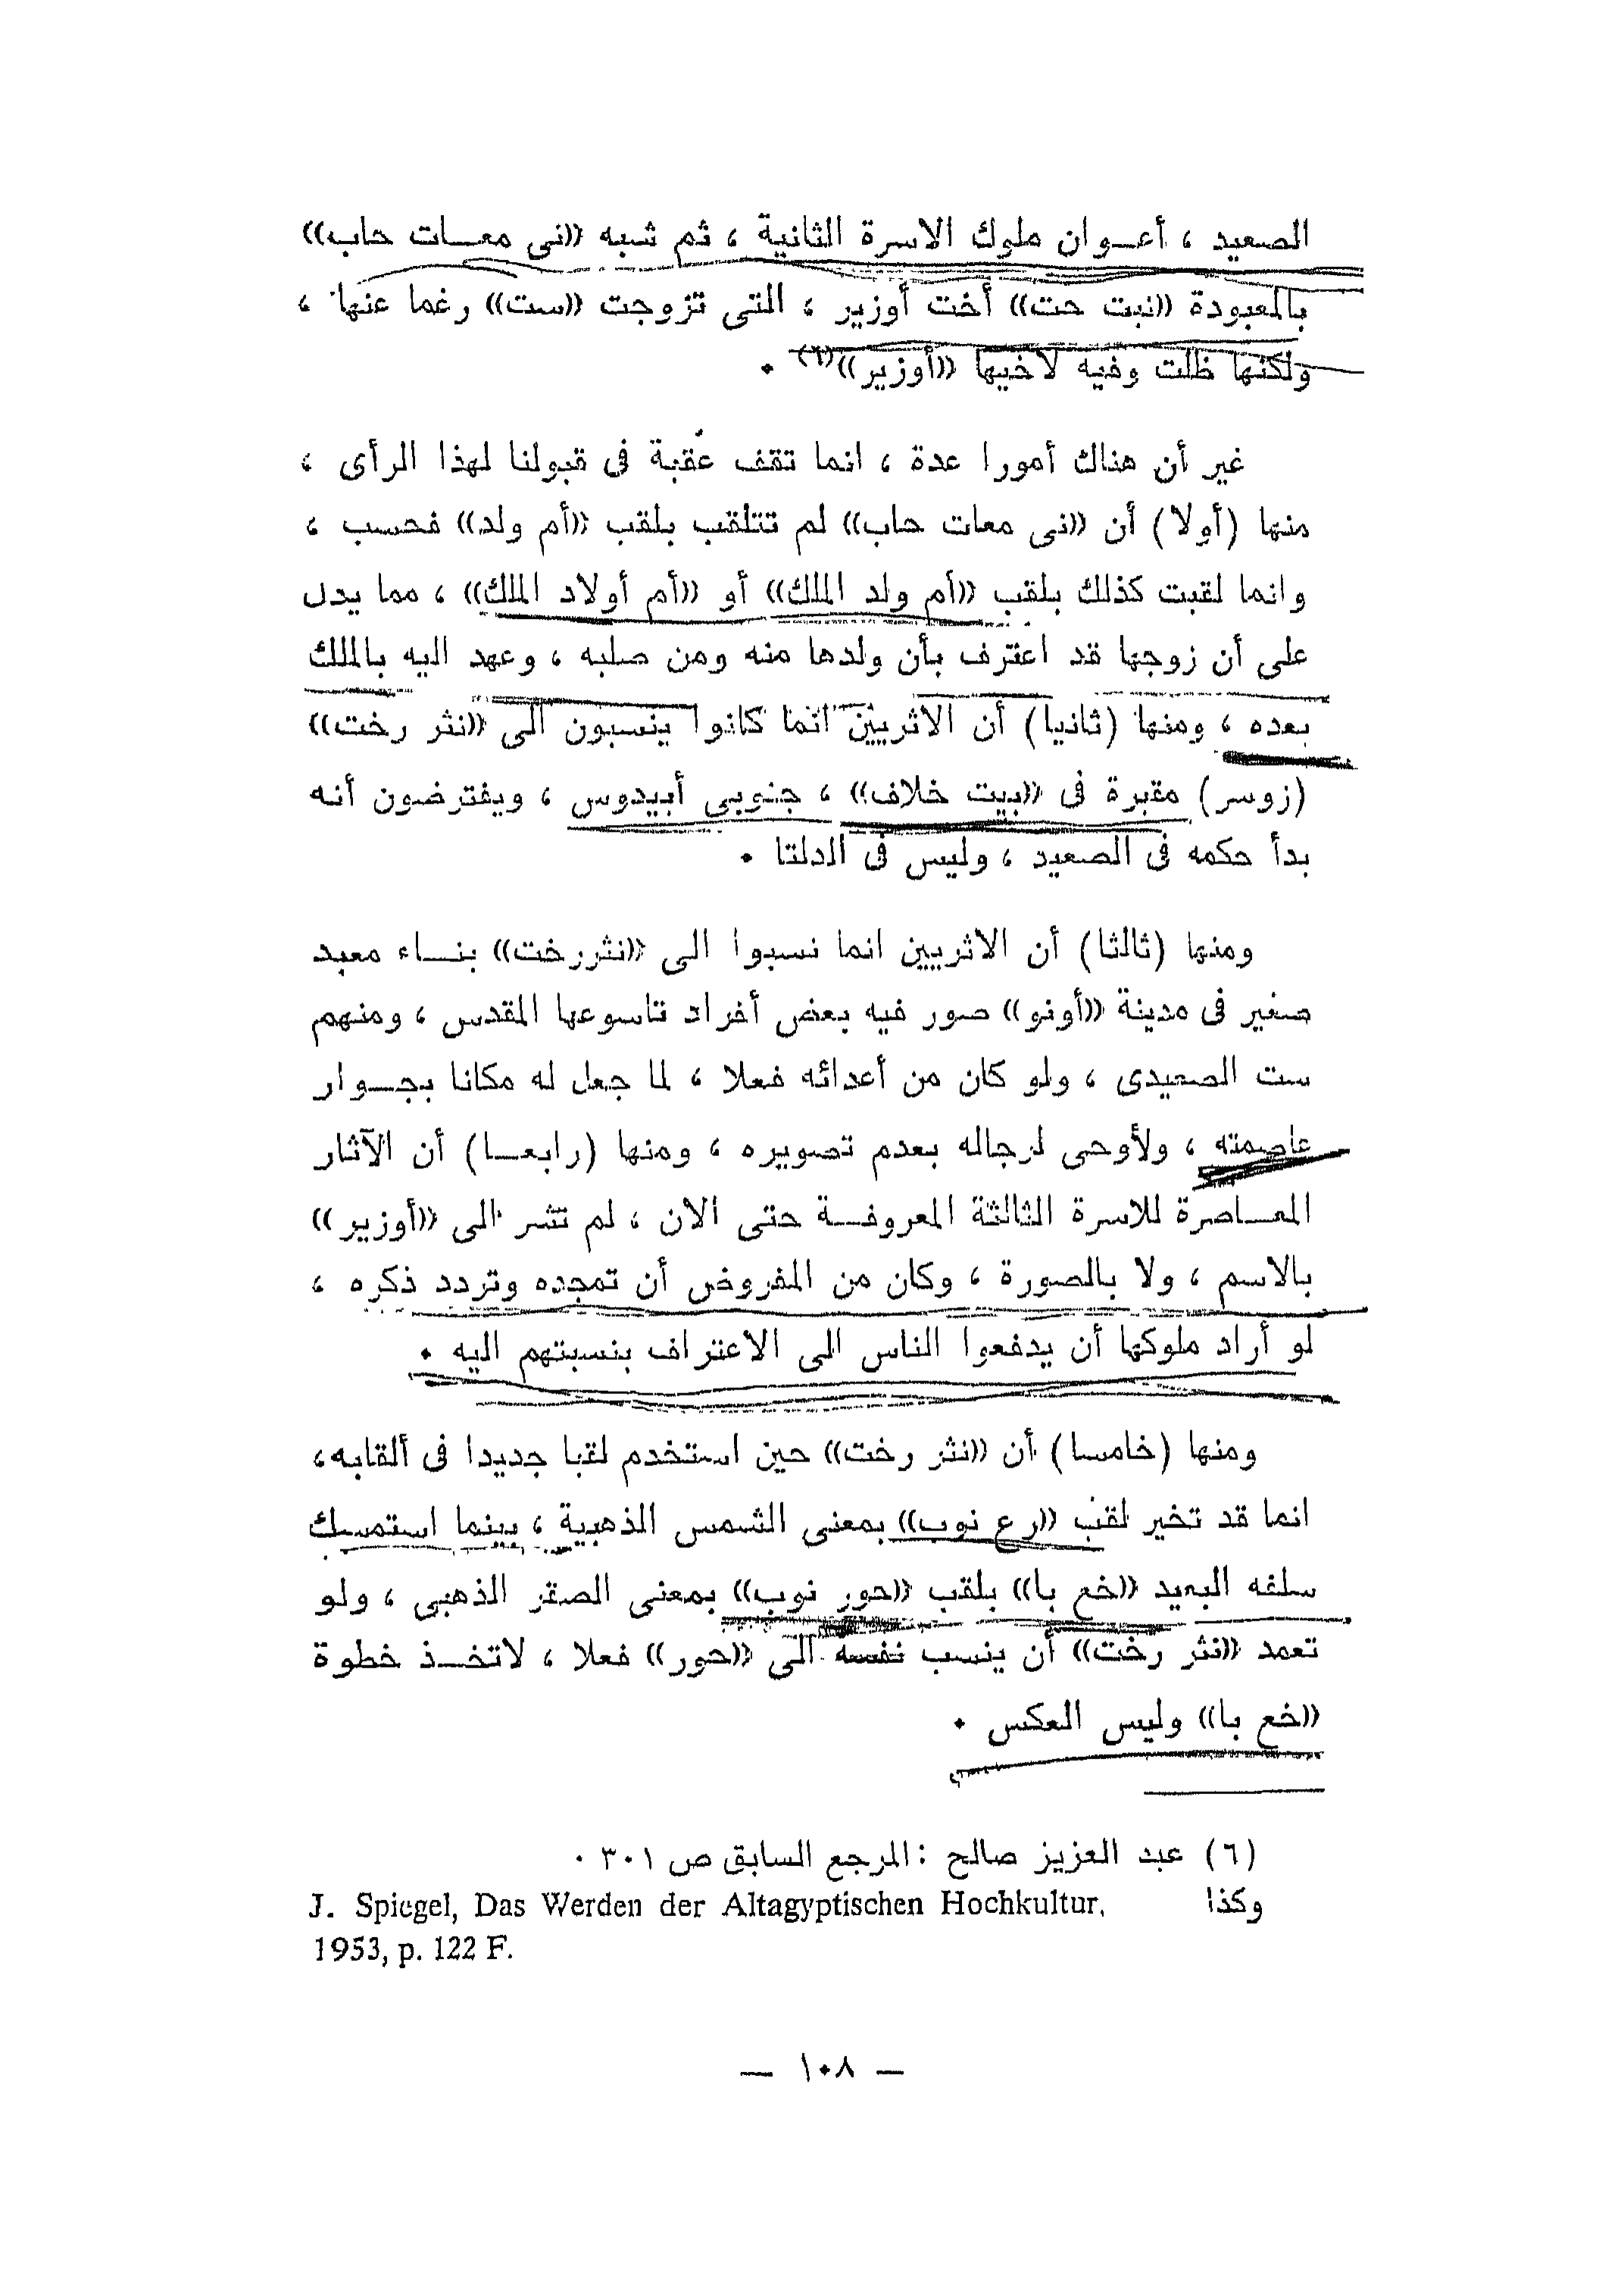 الصعيد ، أعـوان ملوك الاسرة الثانية ، ثم شبه «نى معـات حاب»
بالمعبودة «نبت حت» أخت أوزير ، التى تزوجت «ست» رغما عنها ،
ولكنها ظلت وفيه لاخيها «أوزير»(٦) .
غير أن هناك أمورا عدة ، انما تقف عقبة فى قبولنا لهذا الرأى ،
منها (أولا) أن «نى معات حاب» لم تتلقب بلقب «أم ولد» فحسب ،
وانما لقبت كذلك بلقب «أم ولد الملك» أو «أم أولاد الملك» ، مما يدل
على أن زوجها قد اعترف بأن ولدها منه ومن صلبه ، وعهد اليه بالملك
بعده ، ومنها (ثانيا) أن الاثريين انما كانوا ينسبون الى «نثر رخت»
(زوسر) مقبرة فى «بيت خلاف» ، جنوبى أبيدوس ، ويفترضون أنه
بدأ حكمه فى الصعيد ، وليس فى الدلتا .
ومنها (ثالثا) أن الاثريين انما نسبوا الى «نثررخت» بنـاء معبد
صغير فى مدينة «أونو» صور فيه بعض أفراد تاسوعها المقدس ، ومنهم
ست الصعيدى ، ولو كان من أعدائه فعلا ، لما جعل له مكانا بجـوار
عاصمته ، ولأوحى لرجاله بعدم تصويره ، ومنها (رابعـا) أن الآثار
المعـاصرة للاسرة الثالثة المعروفـة حتى الان ، لم تشر الى «أوزير»
بالاسم ، ولا بالصورة ، وكان من المفروض أن تمجده وتردد ذكره ،
لو أراد ملوكها أن يدفعوا الناس الى الاعتراف بنسبتهم اليه .
ومنها (خامسا) أن «نثر رخت» حين استخدم لقبا جديدا فى ألقابه،
انما قد تخير لقب «رع نوب» بمعنى الشمس الذهبية ، بينما استمسك
سلفه البعيد «خع با» بلقب «حور نوب» بمعنى الصقر الذهبى ، ولو
تعمد «نثر رخت» أن ينسب نفسه الى «حور» فعلا ، لاتخـذ خطوة
«خع با» وليس العكس .
(٦) عبد العزيز صالح : المرجع السابق ص ٣٠١ .
وكذا J. Spiegel, Das Werden der Altagyptischen Hochkultur,
1953, p. 122 F.
— ١٠٨ —